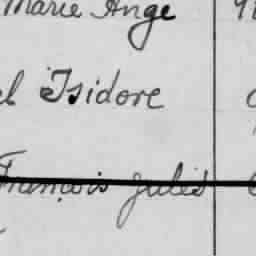 Marie Ange
el Isidore
François Jules